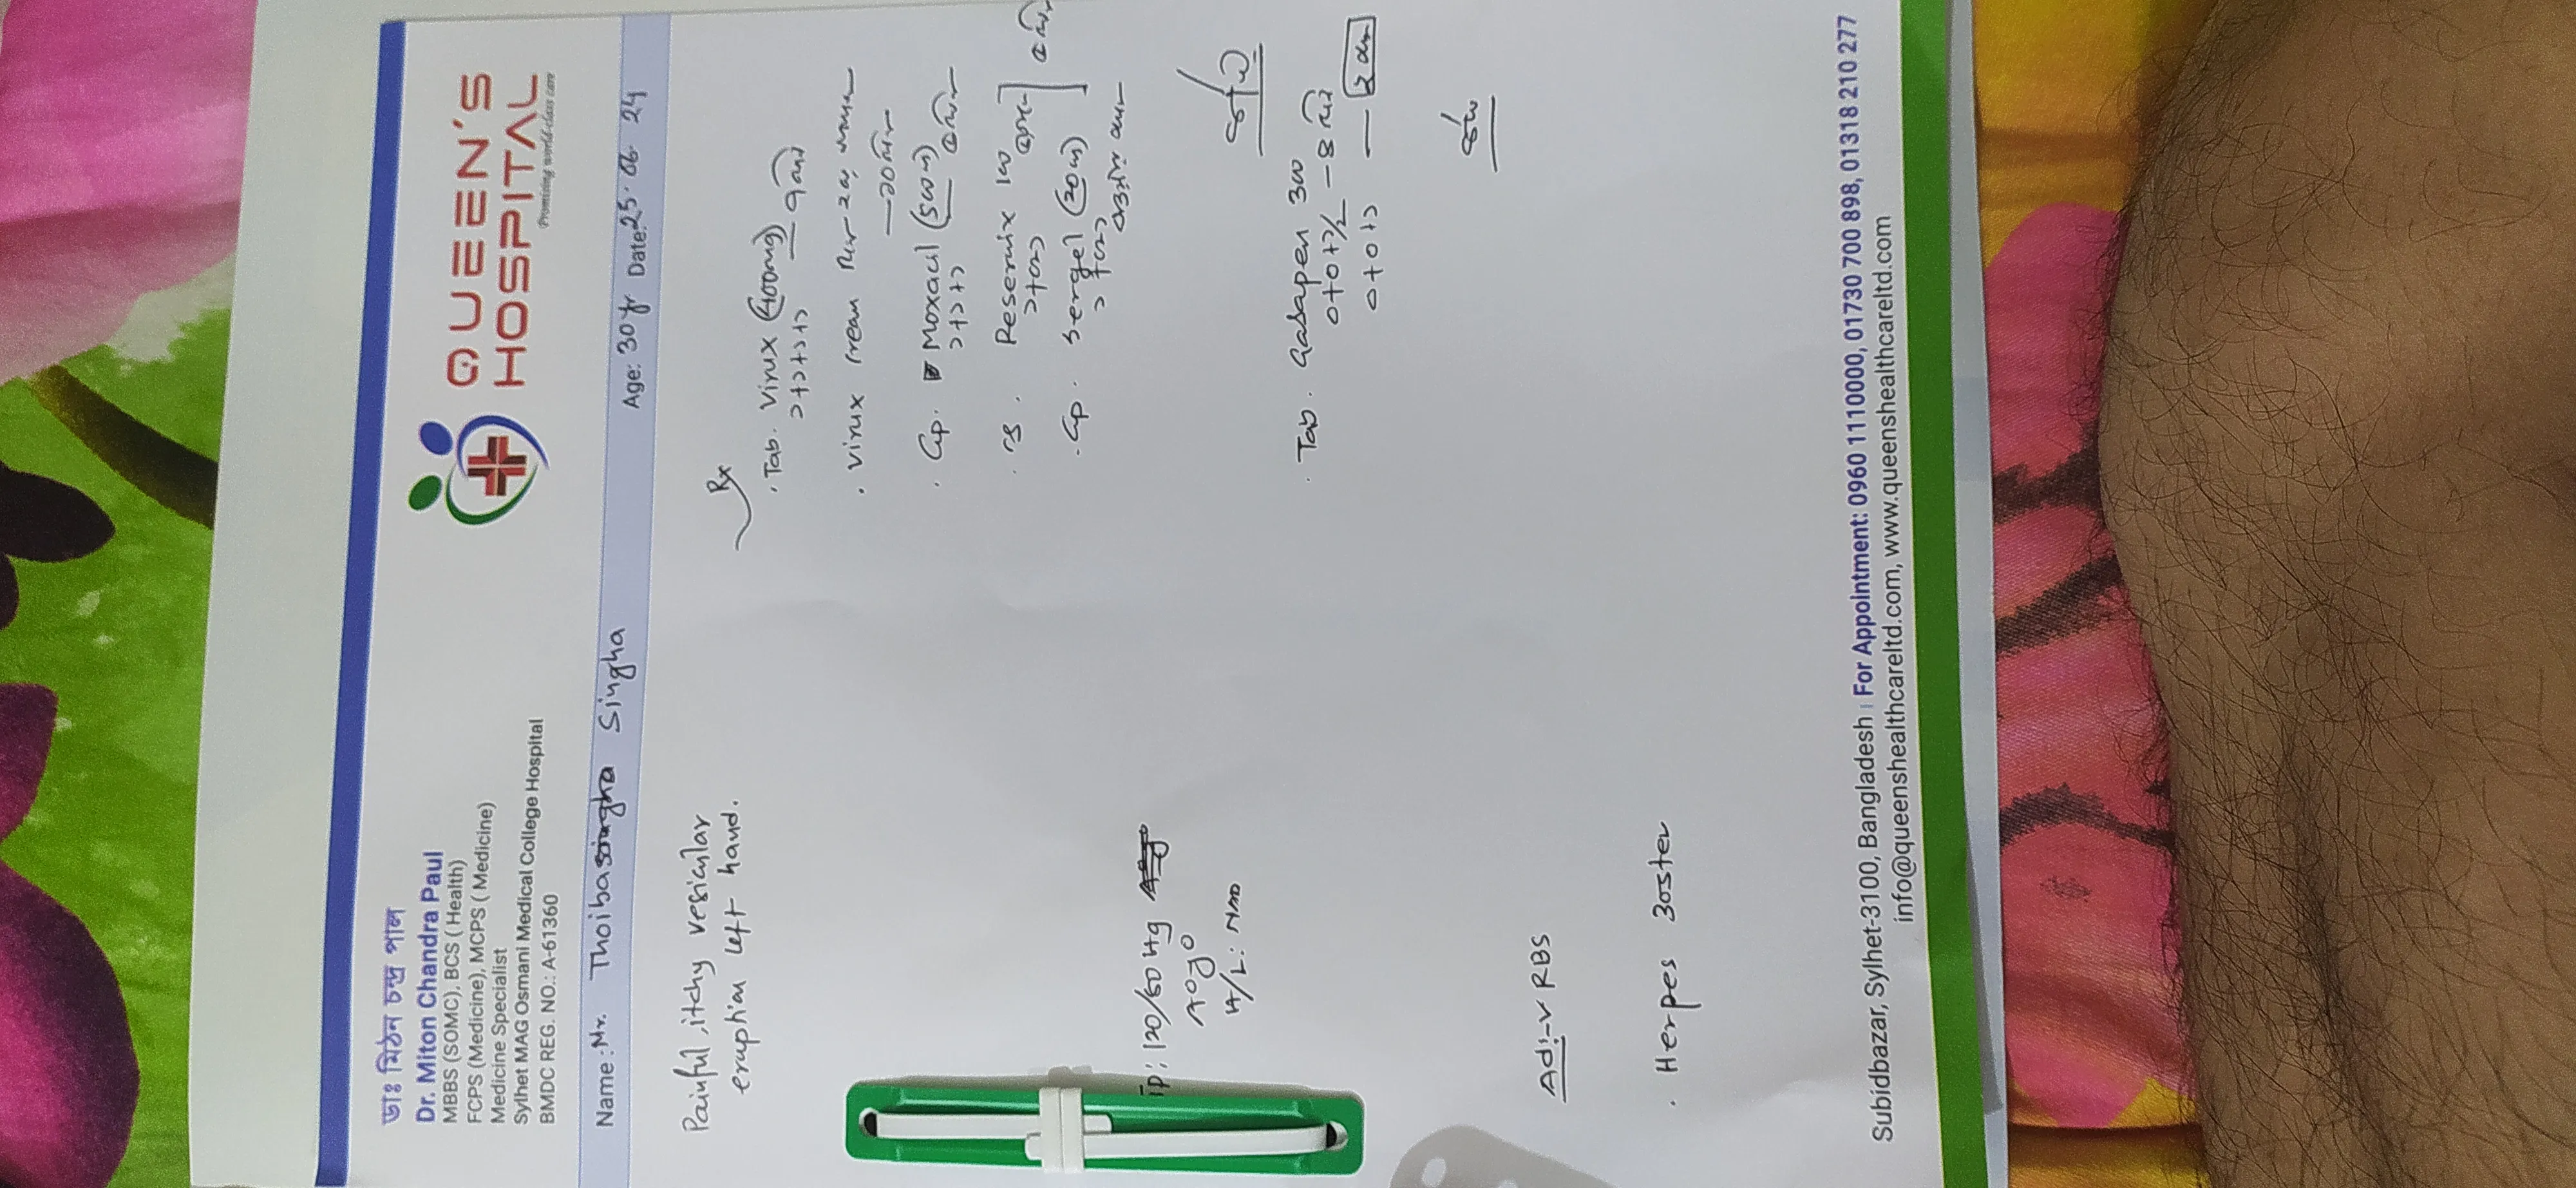 ডাঃ মিঠন চন্দ্র পাল
Dr. Miton Chandra Paul
MBBS (SOMC), BCS ( Health)
FCPS (Medicine), MCPS ( Medicine)
Medicine Specialist
Sylhet MAG Osmani Medical College Hospital
BMDC REG. NO.: A-61360
QUEEN'S
HOSPITAL
Promising world-class care
Name: Mr. Thoiba Singha
Age: 30 yr Date: 25. 06. 24
Painful, itchy vesicular
eruption left hand.
Rx
. Tab. Virux (400mg)
১+১+১+১+১
. Virux Cream
. Cap. Moxacil (500mg)
১+১+১
১+০+১
. Cap. Sergel (20mg)
১+০+১
. Tab. Gabapen 300
০+০+১/২
০+০+১
120/80
H/L: NAD
Adv: RBS
. Herpes Zoster
Subidbazar, Sylhet-3100, Bangladesh | For Appointment: 0960 1110000, 01730 700 898, 01318 210 277
info@queenshealthcareltd.com, www.queenshealthcareltd.com